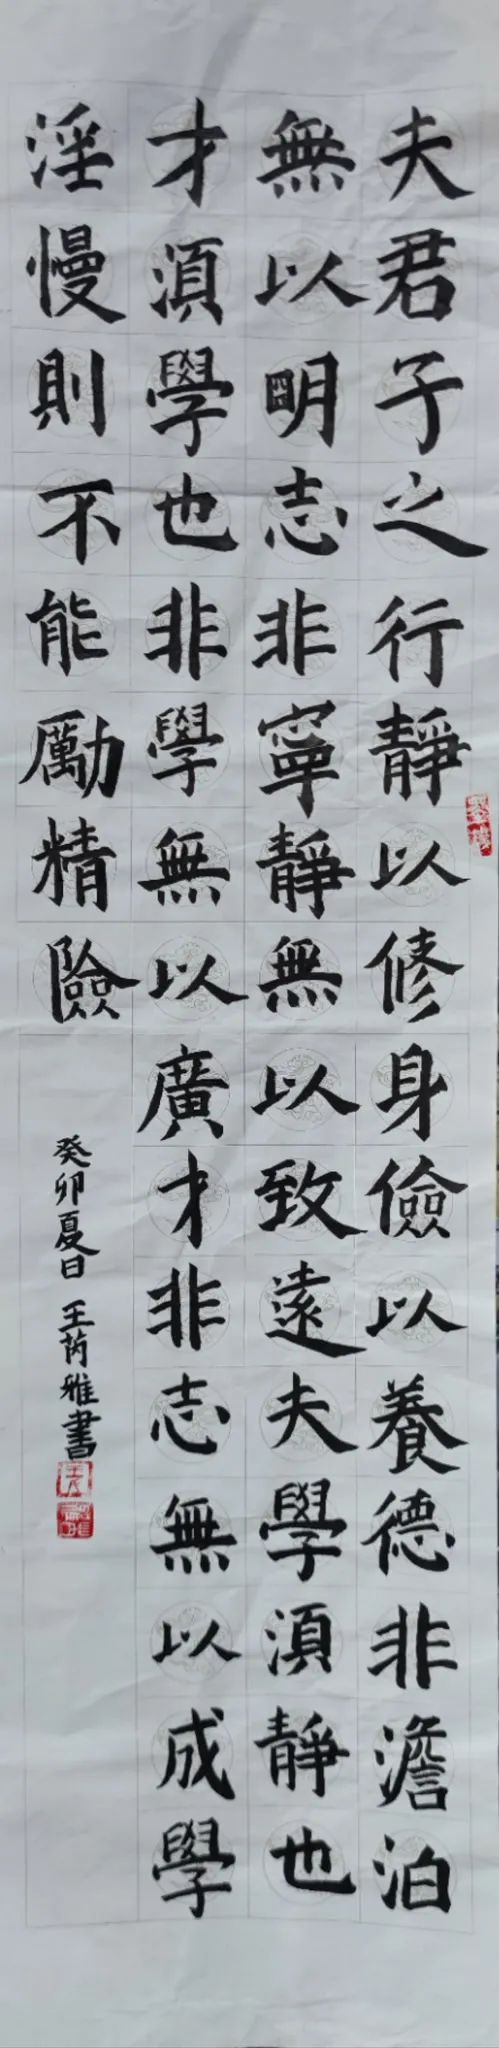 夫君子之行靜以修身儉以養德非澹泊
無以明志非寧靜無以致遠夫學湏靜也
才湏學也非學無以廣才非志無以成學
淫慢則不能勵精險
癸卯夏日 王芮雅書